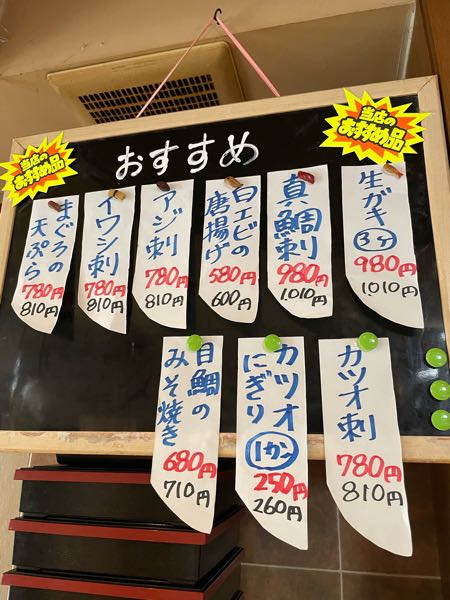 おすすめ
当店の
おすすめ品
当店の
おすすめ品
生ガキ
3ヶ
980円
1,010円
真鯛刺
980円
1,010円
白エビの
唐揚げ
580円
600円
アジ刺
780円
810円
イワシ刺
780円
810円
まぐろの
天ぷら
780円
810円
カツオ刺
780円
810円
カツオ
にぎり
1カン
250円
260円
目鯛の
みそ焼き
680円
710円